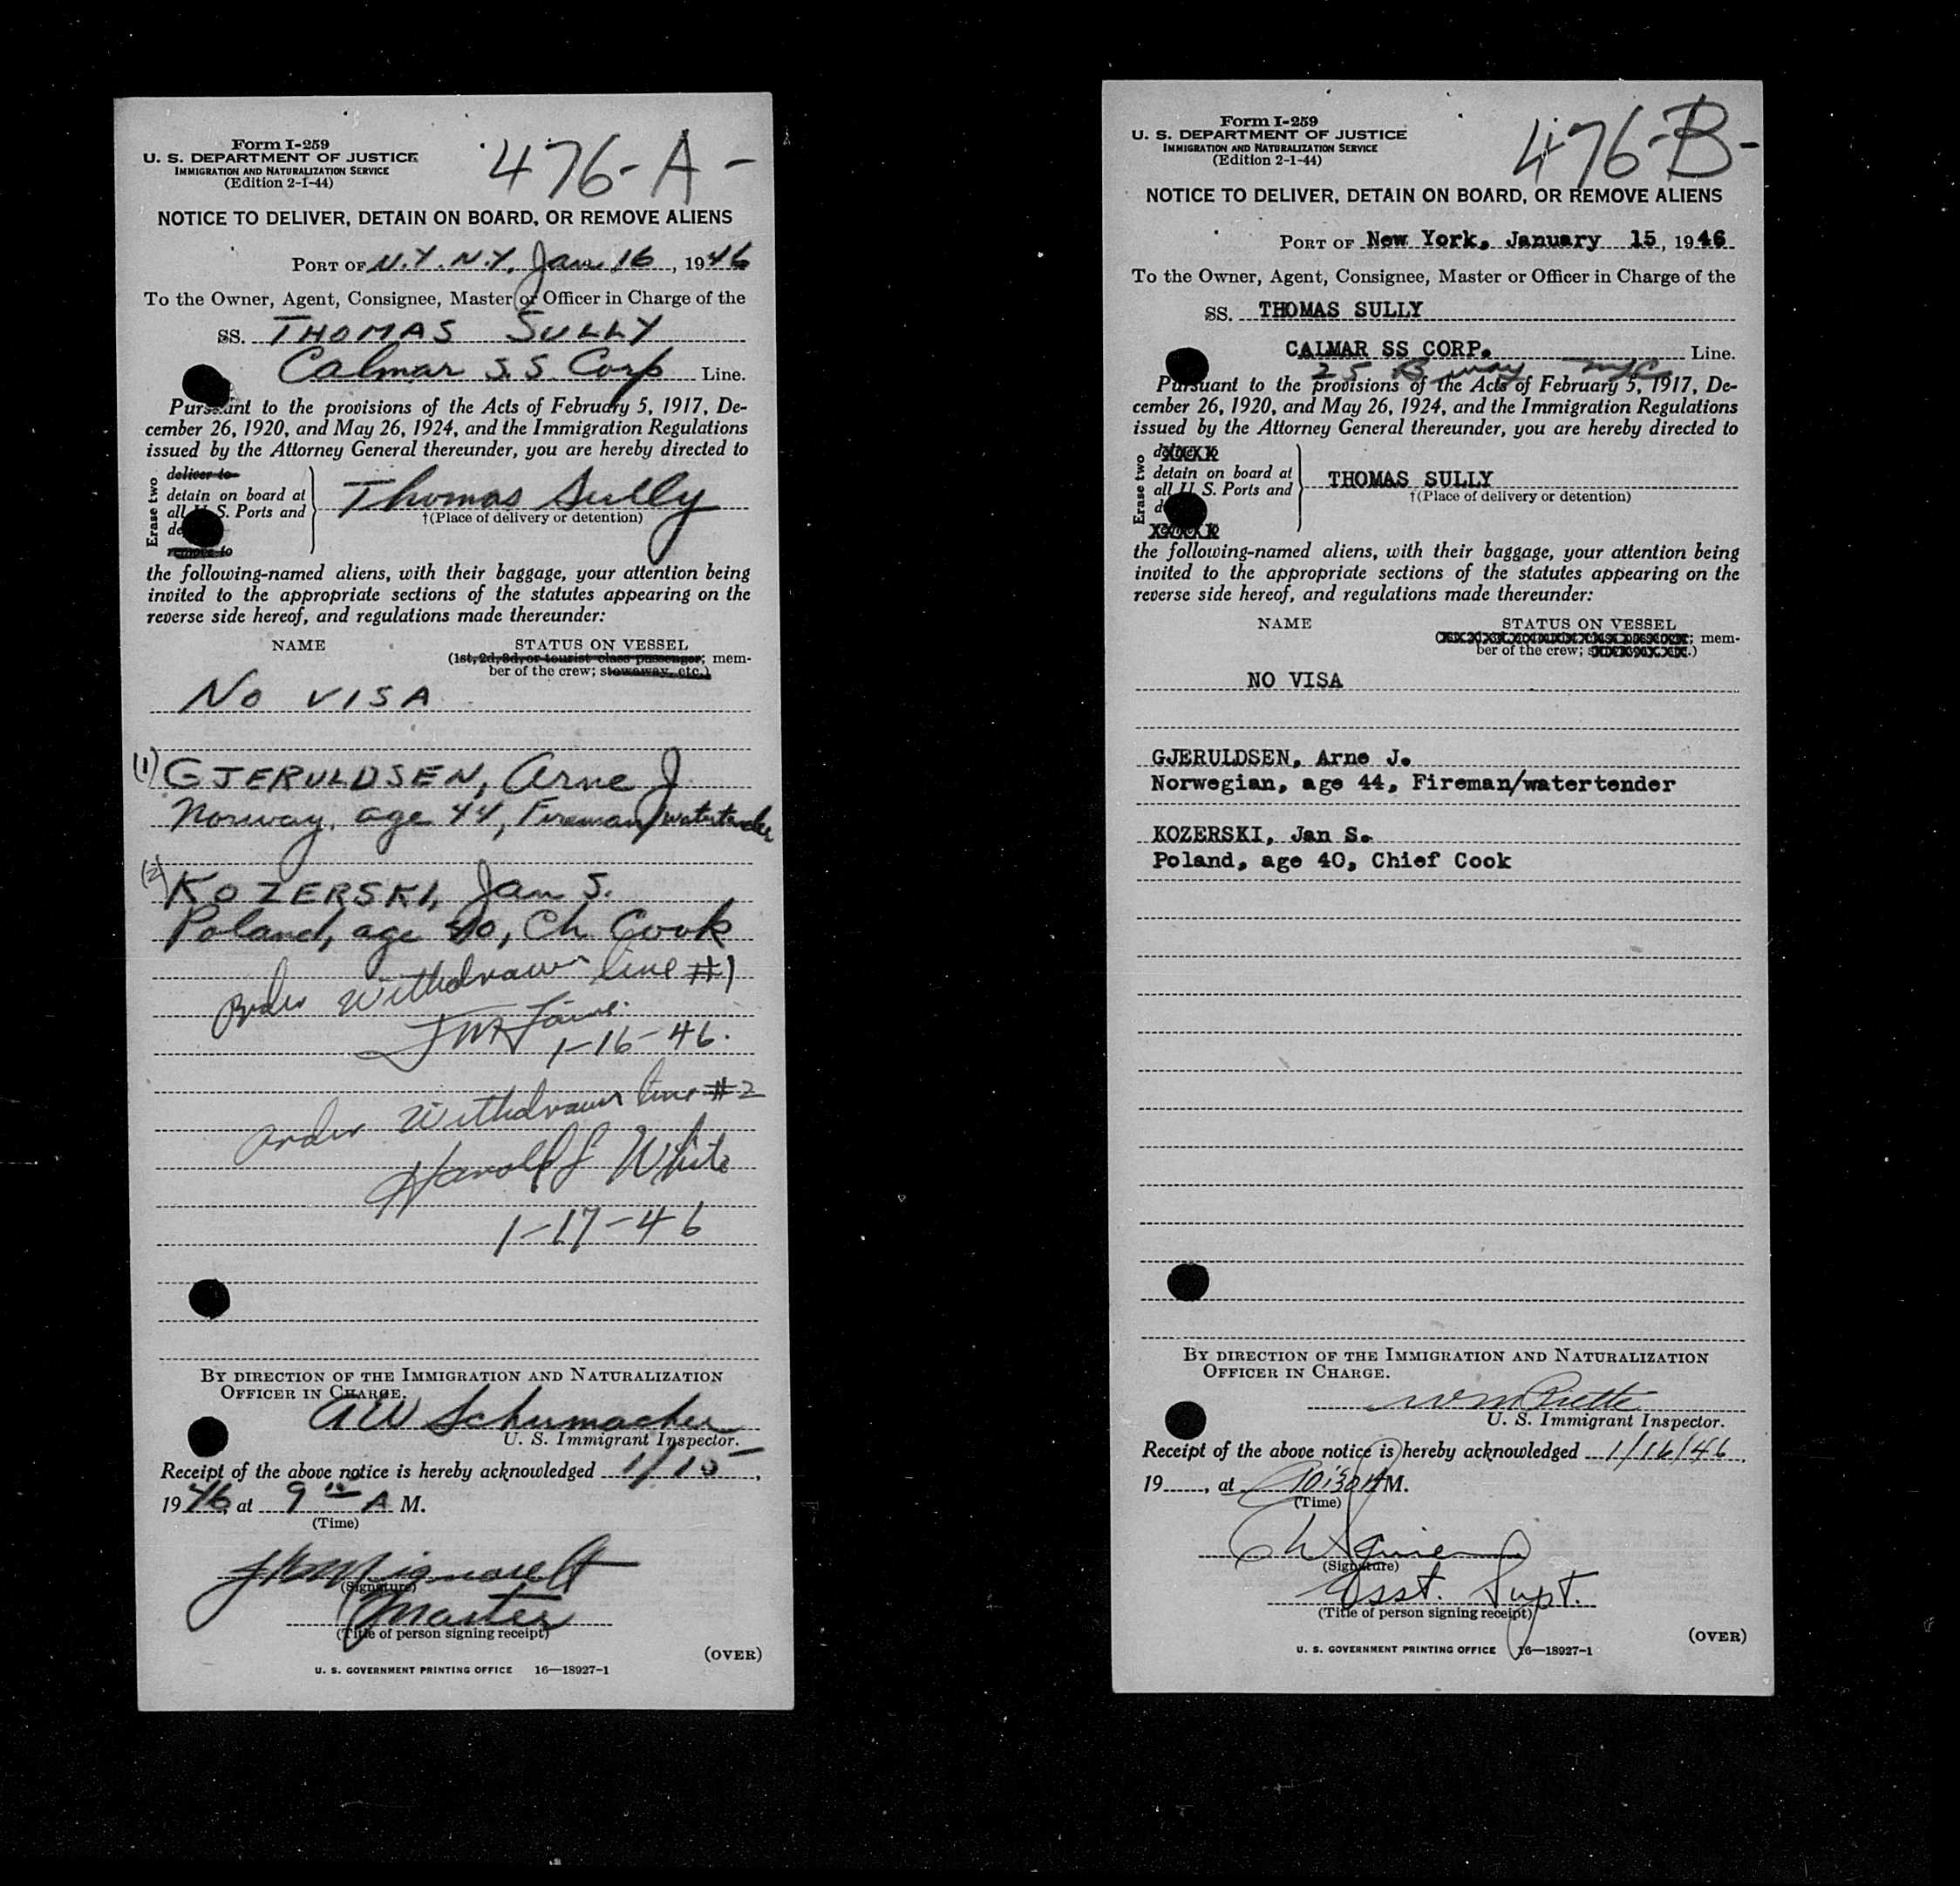 Form I-259
U. S. DEPARTMENT OF JUSTICE
IMMIGRATION AND NATURALIZATION SERVICE
(Edition 2-1-44)
476-A-
NOTICE TO DELIVER, DETAIN ON BOARD, OR REMOVE ALIENS
PORT OF N.Y. N.Y. Jan 16, 1946
To the Owner, Agent, Consignee, Master or Officer in Charge of the
SS. THOMAS SULLY
Calmar S.S. Corp Line.
Pursuant to the provisions of the Acts of February 5, 1917, De-
cember 26, 1920, and May 26, 1924, and the Immigration Regulations
issued by the Attorney General thereunder, you are hereby directed to
Erase two
deliver to
detain on board at
all U. S. Ports and
remove to
Thomas Sully
†(Place of delivery or detention)
the following-named aliens, with their baggage, your attention being
invited to the appropriate sections of the statutes appearing on the
reverse side hereof, and regulations made thereunder:
NAME STATUS ON VESSEL
(1st, 2d, 3d, or tourist class passenger; mem-
ber of the crew; stowaway, etc.)
NO VISA
(1) GJERULDSEN, Arne J
Norway, age 44, Fireman/watertender
(2) KOZERSKI, Jan S.
Poland, age 40, Ch Cook
Order Withdrawn line #1
1-16-46.
order Withdrawn line #2
Harold J White
1-17-46
BY DIRECTION OF THE IMMIGRATION AND NATURALIZATION
OFFICER IN CHARGE.
A W Schumacher
U. S. Immigrant Inspector.
Receipt of the above notice is hereby acknowledged 1/15,
1946, at 9 A M.
(Time)
(Signature)
Master
(Title of person signing receipt)
(OVER)
U. S. GOVERNMENT PRINTING OFFICE 16—18927-1
Form I-259
U. S. DEPARTMENT OF JUSTICE
IMMIGRATION AND NATURALIZATION SERVICE
(Edition 2-1-44)
476-B-
NOTICE TO DELIVER, DETAIN ON BOARD, OR REMOVE ALIENS
PORT OF New York, January 15, 1946
To the Owner, Agent, Consignee, Master or Officer in Charge of the
SS. THOMAS SULLY
CALMAR SS CORP. Line.
25 B way NYC
Pursuant to the provisions of the Acts of February 5, 1917, De-
cember 26, 1920, and May 26, 1924, and the Immigration Regulations
issued by the Attorney General thereunder, you are hereby directed to
Erase two
detain on board at
all U. S. Ports and
THOMAS SULLY
†(Place of delivery or detention)
the following-named aliens, with their baggage, your attention being
invited to the appropriate sections of the statutes appearing on the
reverse side hereof, and regulations made thereunder:
NAME STATUS ON VESSEL
; mem-
ber of the crew;
NO VISA
GJERULDSEN, Arne J.
Norwegian, age 44, Fireman/watertender
KOZERSKI, Jan S.
Poland, age 40, Chief Cook
BY DIRECTION OF THE IMMIGRATION AND NATURALIZATION
OFFICER IN CHARGE.
U. S. Immigrant Inspector.
Receipt of the above notice is hereby acknowledged 1/16/46,
19, at 10:30 A M.
(Time)
(Signature)
Asst. Supt.
(Title of person signing receipt)
(OVER)
U. S. GOVERNMENT PRINTING OFFICE 16—18927-1